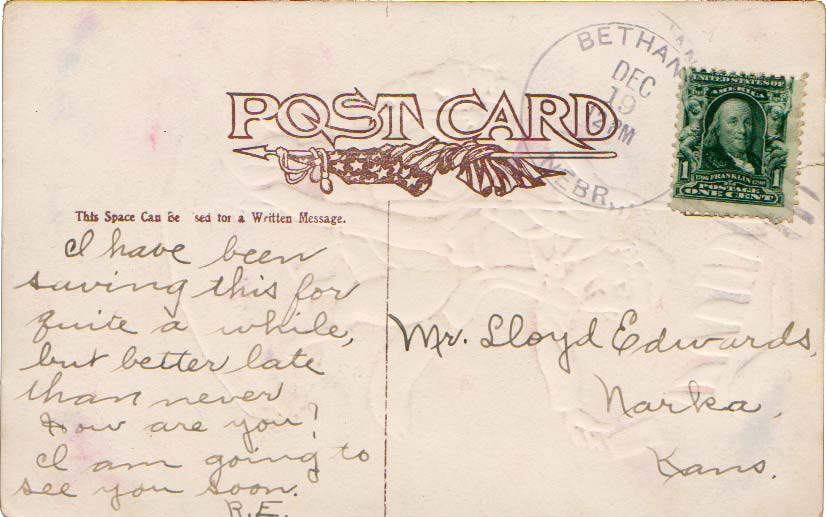 BETHAN
DEC
19
PM
NEBR.
POST CARD
UNITED STATES OF
AMERICA
1 FRANKLIN 1
POSTAGE
ONE CENT
This Space Can Be sed for a Written Message.
I have been
saving this for
quite a while,
but better late
than never
How are you?
I am going to
see you soon.
R.E.
Mr. Lloyd Edwards,
Narka,
Kans.